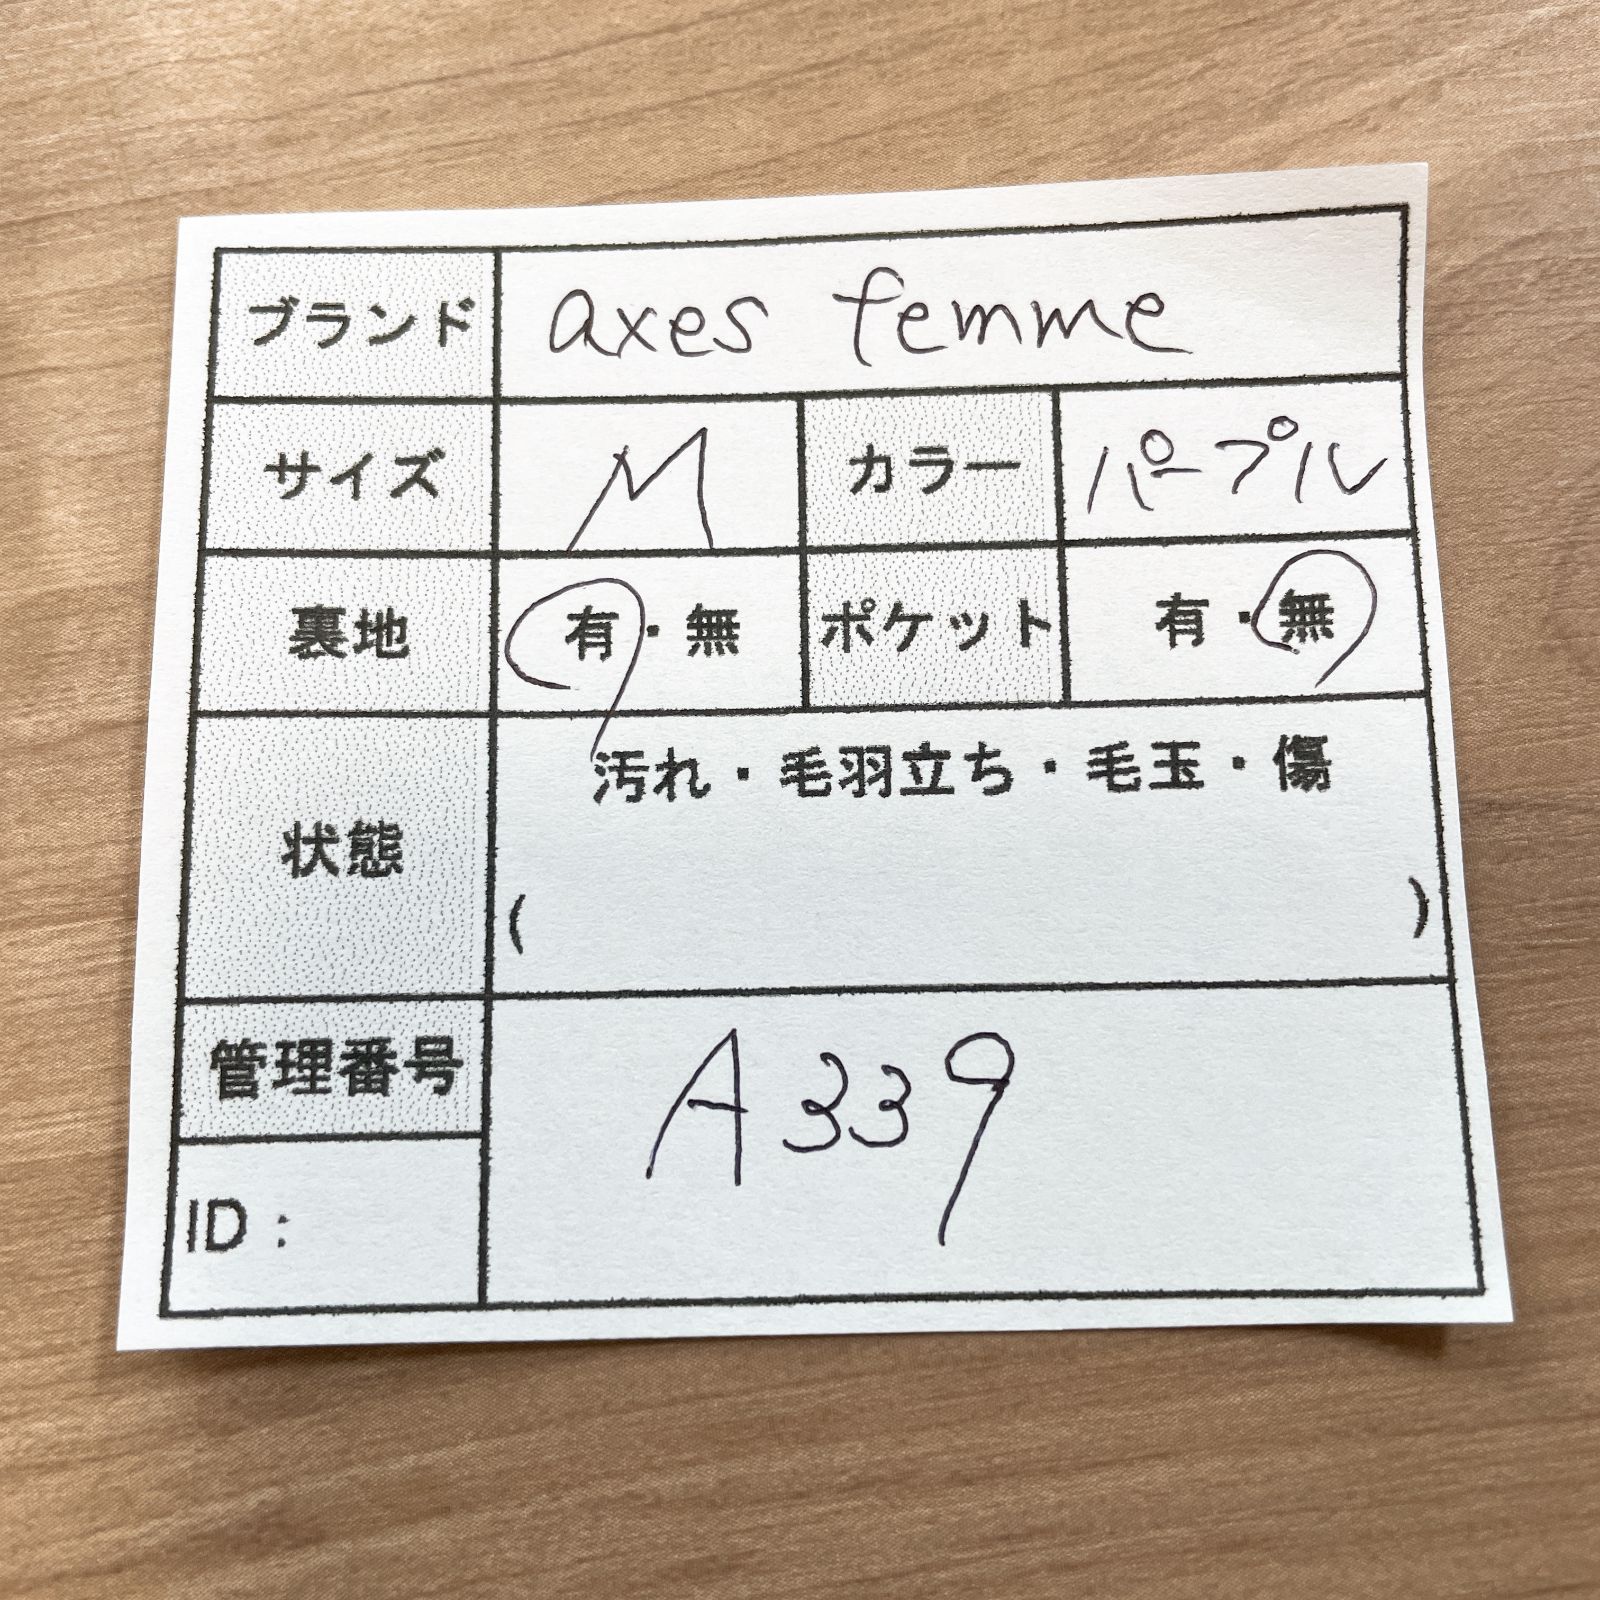 ブランド axes femme
サイズ M カラー パープル
裏地 有・無 ポケット 有・無
汚れ・毛羽立ち・毛玉・傷
状態
( )
管理番号 A339
ID: